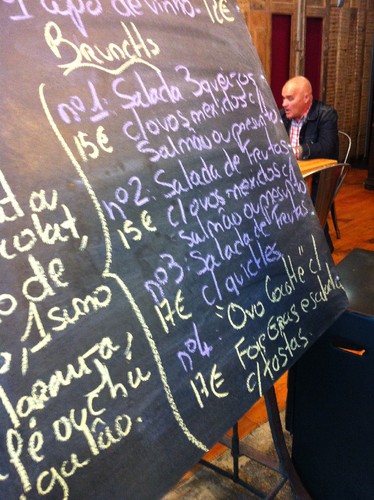 1 copo de vinho. 12€
Brunchs
nº1. Salada 3 
15€ c/ovos mexidos c/
Salmão ou presunto
nº2. Salada de Frutas
15€ c/ovos mexidos c/
Salmão ou presunto
nº3. Salada de Frutas
17€ c/quiches
nº4. "Ovo Cocotte" c/
17€ Foie Gras e salada
c/tostas.
de
1 sumo
pé ou chá
galão.